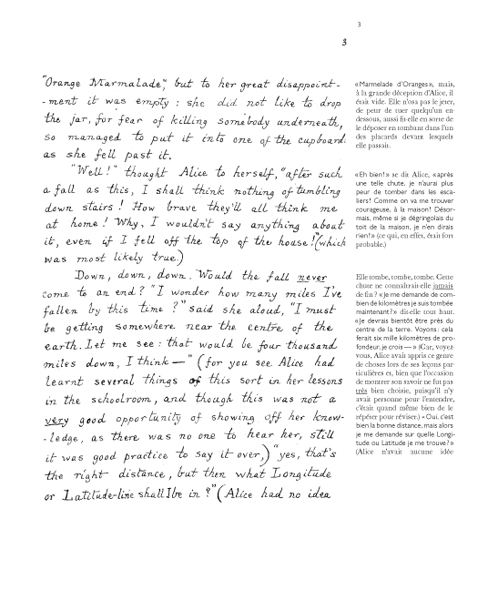 3
3
"Orange Marmalade," but to her great disappoint-
-ment it was empty : she did not like to drop
the jar, for fear of killing somebody underneath,
so managed to put it into one of the cupboards
as she fell past it.
"Well!" thought Alice to herself, "after such
a fall as this, I shall think nothing of tumbling
down stairs! How brave they'll all think me
at home! Why, I wouldn't say anything about
it, even if I fell off the top of the house!" (which
was most likely true.)
Down, down, down. Would the fall never
come to an end? "I wonder how many miles I've
fallen by this time?" said she aloud, "I must
be getting somewhere near the centre of the
earth. Let me see: that would be four thousand
miles down, I think—" (for you see Alice had
learnt several things of this sort in her lessons
in the schoolroom, and though this was not a
very good opportunity of showing off her know-
-ledge, as there was no one to hear her, still
it was good practice to say it over,) "yes, that's
the right distance, but then what Longitude
or Latitude-line shall I be in?" (Alice had no idea
«Marmelade d'Oranges», mais,
à la grande déception d'Alice, il
était vide. Elle n'osa pas le jeter,
de peur de tuer quelqu'un en-
dessous, aussi fit-elle en sorte de
le déposer en tombant dans l'un
des placards devant lesquels
elle passait.
«Eh bien!» se dit Alice, «après
une telle chute, je n'aurai plus
peur de tomber dans les esca-
liers! Comme on va me trouver
courageuse, à la maison! Désor-
mais, même si je dégringolais du
toit de la maison, je n'en dirais
rien!» (ce qui, en effet, était fort
probable.)
Elle tombe, tombe, tombe. Cette
chute ne connaîtrait-elle jamais
de fin? «Je me demande de com-
bien de kilomètres je suis tombée
maintenant?» dit-elle tout haut.
«Je devrais bientôt être près du
centre de la terre. Voyons: cela
ferait six mille kilomètres de pro-
fondeur, je crois—» (Car, voyez-
vous, Alice avait appris ce genre
de choses lors de ses leçons par-
ticulières et, bien que l'occasion
de montrer son savoir ne fût pas
très bien choisie, puisqu'il n'y
avait personne pour l'entendre,
c'était quand même bien de le
répéter pour réviser.) «Oui, c'est
bien la bonne distance, mais alors
je me demande sur quelle Longi-
tude ou Latitude je me trouve?»
(Alice n'avait aucune idée